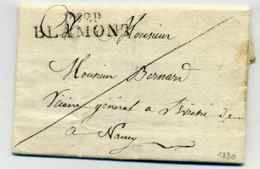 BLAMONT
Monsieur
Monsieur Bernard
Vicaire général à
à Nancy
1830